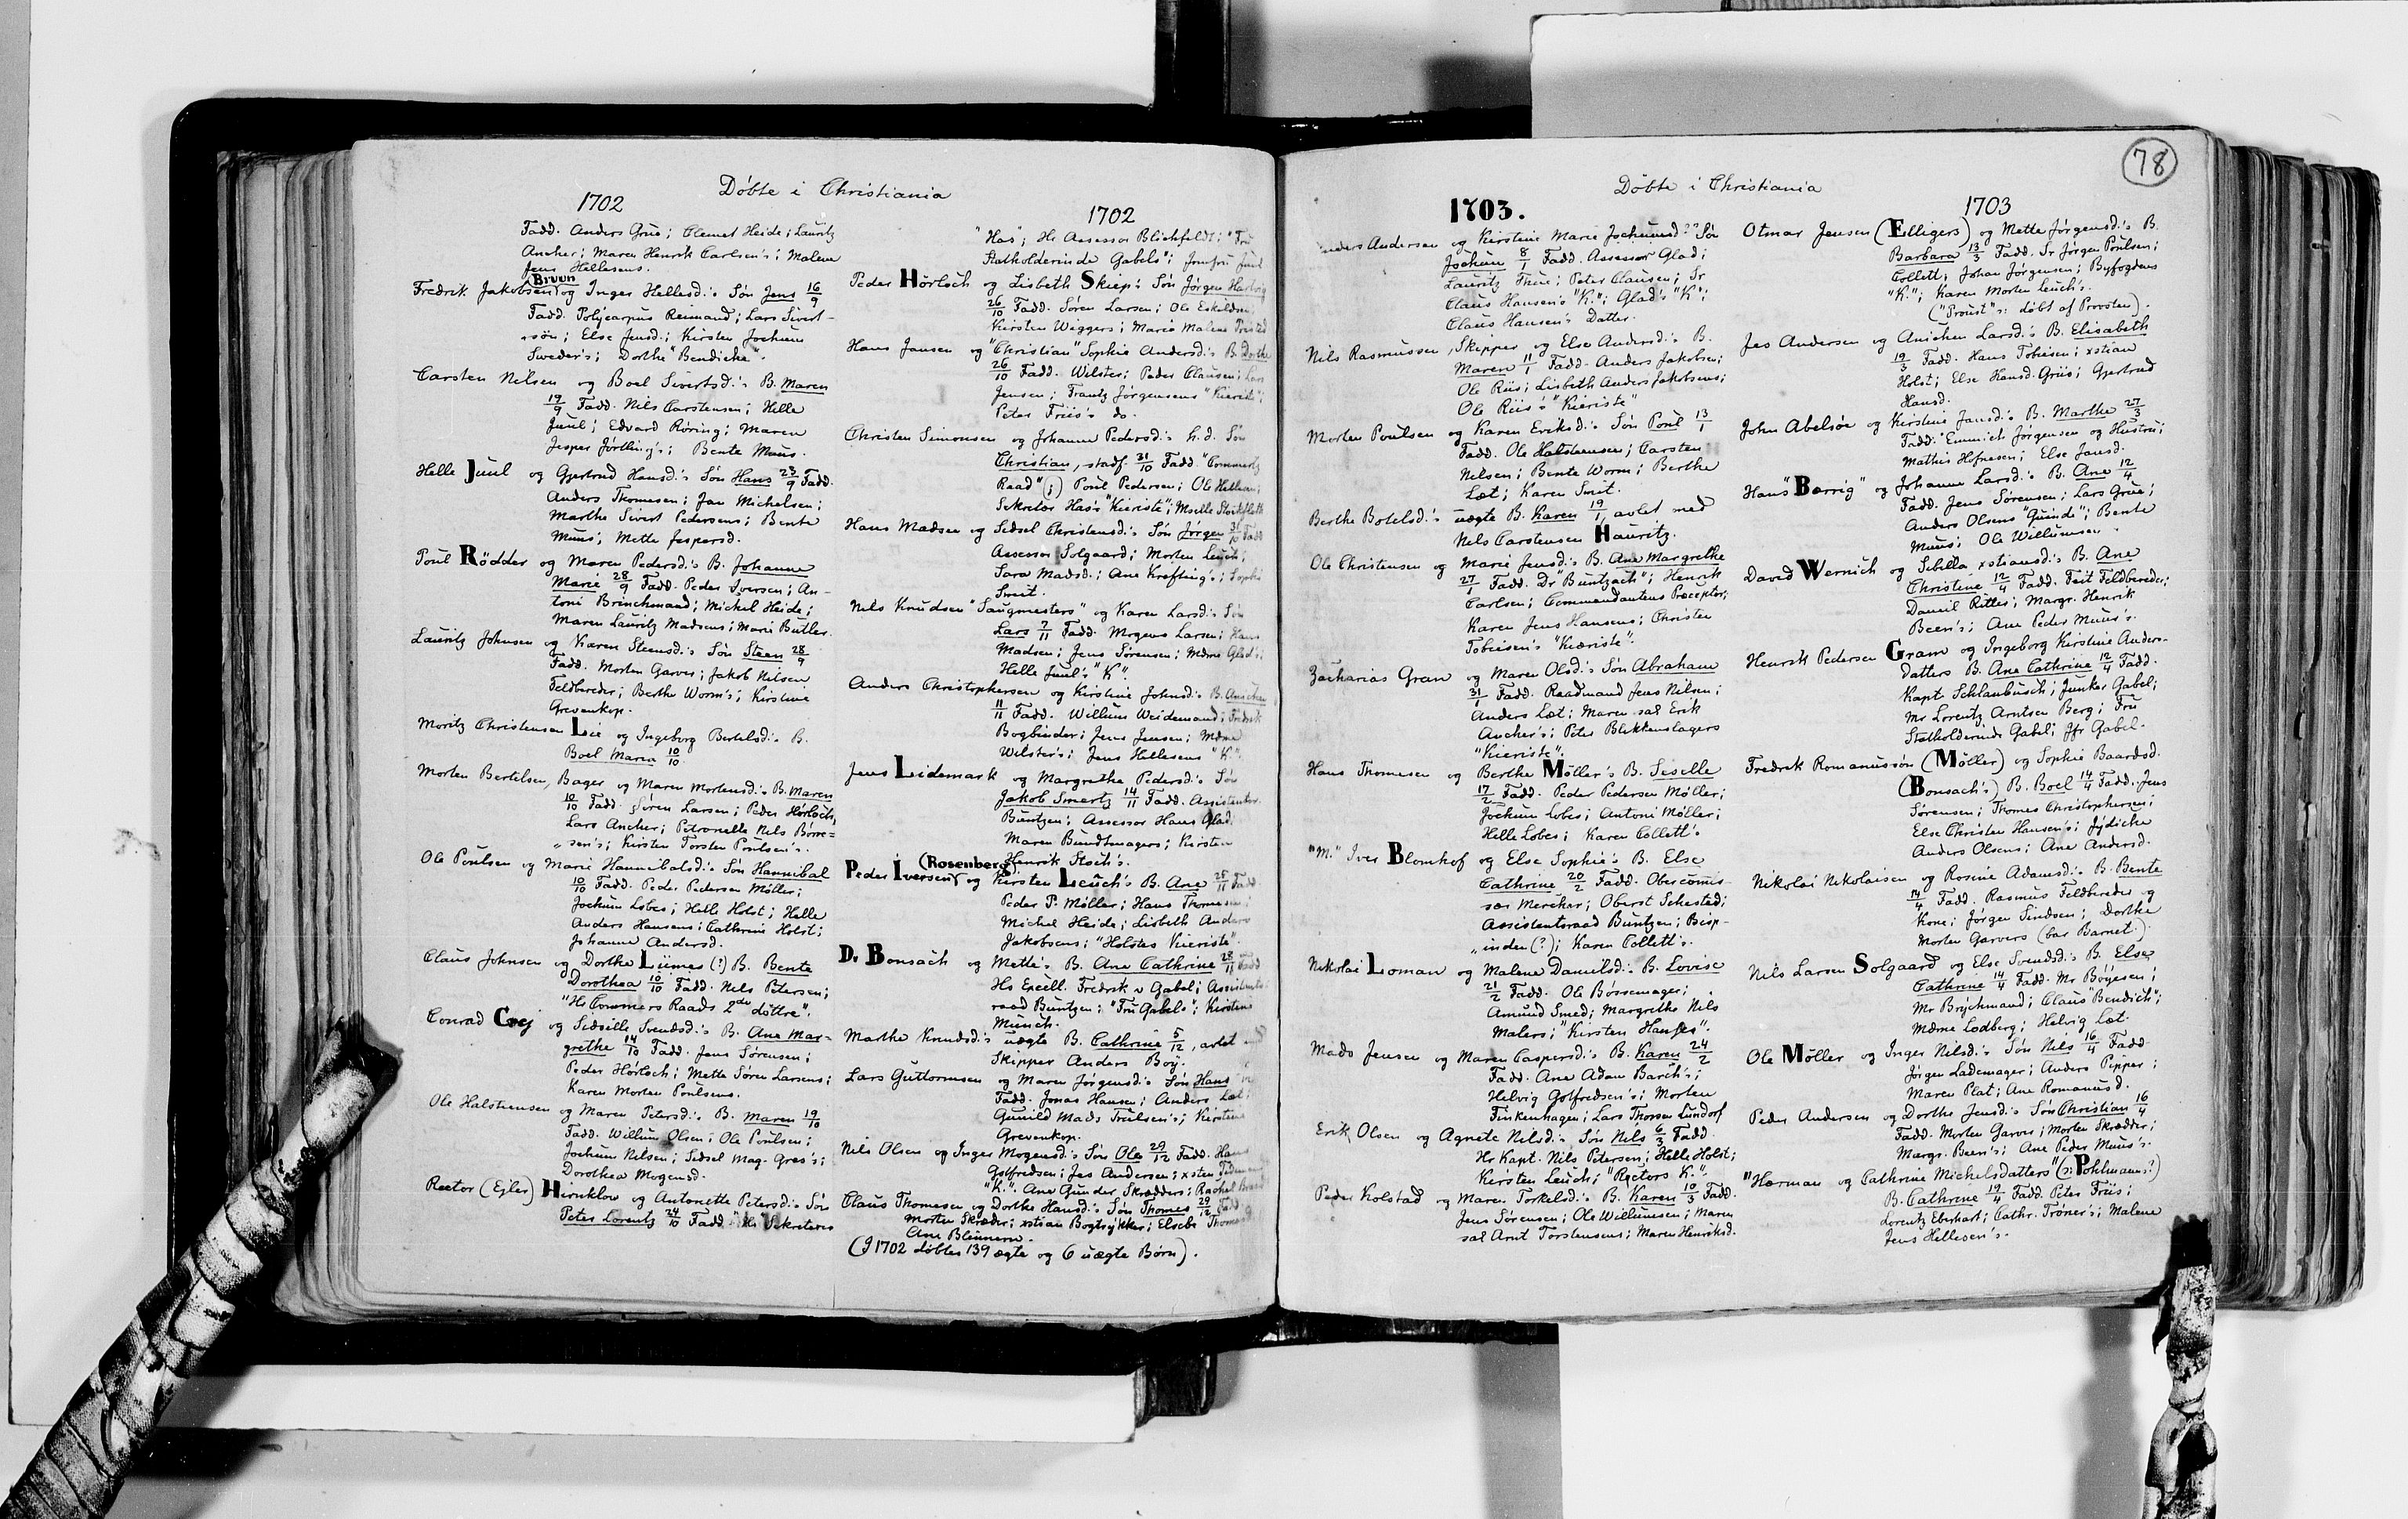 Döbte i Christiania
1702
Fadd. Anders Grue; Clemet Heide; Lauritz
Ancher; Maren Henrik Carlsen's; Malene
Jens Hellesens.
Bruun
Fredrik Jakobsen og Inger Hellesd.'s Sön Jens 16/9
Fadd. Polycarpus Reimand; Lars Sivert-
sön; Else Jensd.; Kirsten Jochum
Sweder's; Dorthe "Bendicke".
Carsten Nilsen og Boel Sivertsd.'s B. Maren
19/9 Fadd. Nils Carstensen; Helle
Juul; Edvard Röring; Maren
Jesper Jörtling's; Bente Muus.
Helle Juul og Gjertrud Hansd.'s Sön Hans 23/9 Fadd.
Anders Thomesen; Jan Michelsen;
Marthe Sivert Pedersens; Bente
Muus; Mette Jespersd.
Poul Rödder og Maren Pedersd.'s B. Johanne
Marie 28/9 Fadd. Peder Iversen; An-
toni Brinchmand; Mickel Heide;
Maren Lauritz Madsens; Marie Butler.
Lauritz Johnsen og Karen Steensd.'s Sön Steen 28/9
Fadd. Morten Garver; Jakob Nilsen
Feldbereder; Berthe Worm's; Kirstine
Grevenkop.
Moritz Christensen Lie og Ingeborg Bertelsd.'s B.
Boel Maria 10/10
Morten Bertelsen, Bager og Maren Mortensd.'s B. Maren
10/10 Fadd. Sören Larsen; Peder Hörloch;
Lars Ancher; Petronelle Nils Börre=
"sen's; Kirsten Torsten Poulsen's.
Ole Poulsen og Marie Hannibalsd.'s Sön Hannibal
10/10 Fadd. Peder Pedersen Möller;
Jochum Lobes; Helle Holst; Helle
Anders Hansens; Cathrine Holst;
Johanne Andersd.
Claus Johnsen og Dorthe Liimes (?) B. Bente
Dorothea 10/10 Fadd. Nils Petersen;
"Hr Commers Raads 2de döttre".
Conrad Grej og Sidselle Svendsd.'s B. Ane Mar-
grethe 14/10 Fadd. Jens Sörensen;
Peder Hörloch; Mette Sören Larsens;
Karen Morten Poulsens.
Ole Halstensen og Maren Petersd.'s B. Maren 19/10
Fadd. Willum Olsen; Ole Poulsen;
Jochum Nilsen; Sidsel Mag. Gres's;
Dorothea Mogensd.
Rector (Ejler) Hirnklow og Antonette Petersd.'s Sön
Peter Lorentz 24/10 Fadd. "Hr Sekreterer
1702
"Has"; Hr Assessor Blichfeldt; "Fru
Statholderinde Gabels"; Jomfru Juul
Peder Hörloch og Lisbeth Skiep's Sön Jörgen Hartvig
26/10 Fadd. Sören Larsen; Ole Eskildsen;
Kirsten Wiggers; Marie Malene
Hans Jansen og "Christian" Sophie Andersd.'s B. Dorthe
26/10 Fadd. Wilster; Peder Clausen; Lars
Jensen; Frantz Jörgensens "Kieriste";
Peter Friis's do.
Christen Simonsen og Johanne Pedersd.'s h.d. Sön
Christian, stadf. 31/10 Fadd. "Commertz
Raad" (;) Poul Pedersen; Ole Hellesen;
Sekretær Has's "Kieriste"; Mselle Stockfleth
Hans Madsen og Sidsel Christensd.'s Sön Jörgen 31/10 Fadd
Assessor Solgaard; Morten Leuch;
Sara Madsd.; Ane Krefting's; Sophie
Smit.
Nils Knudsen "Saugmesters" og Karen Larsd.'s Sön
Lars 7/11 Fadd. Mogens Larsen; Hans
Madsen; Jens Sörensen; Mdme Glad's;
Helle Juul's "K".
Anders Christophersen og Kirstine Johnsd.'s B. Anichen
11/11 Fadd. Willum Weidemand; Fredrik
Bogbinder; Jens Jensen; Mdme
Wilster's; Jens Hellesens "K".
Jens Lidemark og Margrethe Pedersd.'s Sön
Jakob Smertz 14/11 Fadd. Assistentsr.
Buntzen; Assessor Hans Glad;
Maren Bundtmagers; Kirsten
Henrik Stoch's.
(Rosenberg)
Peder Iversen og Kirsten Leuch's B. Ane 25/11 Fadd.
Peder P. Möller; Hans Thomesen;
Michel Heide; Lisbeth Anders
Jakobsens; "Holstes Kieriste".
D. Bonsach og Mette's B. Ane Cathrine 28/11 Fadd
Hs Excell. Fredrik v Gabel; Assistents-
raad Buntzen; "Fru Gabels"; Kirsten
Munch.
Marthe Knudsd.'s uægte B. Cathrine 5/12, avlet med
Skipper Anders Boy.
Lars Guttormsen og Maren Jörgensd.'s Sön Hans
Fadd. Jonas Hansen; Anders Læt;
Gunild Mads Truelsen's; Kirstine
Grevenkop.
Nils Olsen og Inger Mogensd.'s Sön Ole 29/12 Fadd. Hans
Golfredsen; Jes Andersen; xsten
"K."; Ane Gunder Skrædders; Rachel
Claus Thomesen og Dorthe Hansd.'s Sön Thomes 29/12 Fadd
Morten Skræder; xstian Bogtrykker; Elsebe Thomesd;
Ane Blennem.
(I 1702 döbtes 139 ægte og 6 uægte Börn).
78
Döbte i Christiania
1703.
Anders Andersen og Kirstine Marie Jochumsd?? Sön
Jochum 8/1 Fadd. Assessor Glad;
Lauritz Thue; Peter Clausen; Sr
Claus Hansen's "K."; Glad's "K";
Claus Hansen's Datter.
Nils Rasmussen, Skipper og Else Andersd.'s B.
Maren 11/1 Fadd. Anders Jakobsen;
Ole Riis; Lisbeth Anders Jakobsens;
Ole Riis's "Kieriste"
Morten Poulsen og Karen Eriksd.'s Sön Poul 13/1
Fadd. Ole Halstensen; Carsten
Nilsen; Bente Worm; Berthe
Læt; Karen Smit.
Berthe Botelsd.'s uægte B. Karen 19/1, avlet med
Nels Carstensen Hauritz.
Ole Christensen og Marie Jensd.'s B. Ane Margrethe
27/1 Fadd. Dr "Buntzach"; Henrik
Carlsen; Commandantens Præceptor;
Karen Jens Hansens; Christen
Tobiesen's "Kiæriste".
Zacharias Gran og Maren Olsd.'s Sön Abraham
31/1 Fadd. Raadmand Jens Nilsen;
Anders Læt; Maren sal Erik
Ancher's; Peter Blikkenslagers
"Kieriste".
Hans Thomesen og Berthe Möller's B. Siselle
17/2 Fadd. Peder Pedersen Möller;
Jochum Lobes; Antoni Möller;
Helle Lobes; Karen Collett's
"M." Iver Blomhof og Else Sophie's B. Else
Cathrine 20/2 Fadd. Obercomis-
sær Mercker; Oberst Sehested;
Assistentsraad Buntzen; Bisp-
"inden (?); Karen Collett's.
Nikolai Loman og Malene Danielsd.'s B. Lovise
21/2 Fadd. Ole Börssemager;
Amund Smed; Margrethe Nils
Malers; "Kirsten Hanses".
Mads Jensen og Maren Caspersd.'s B. Karen 24/2
Fadd. Ane Adam Barch's;
Helvig Golfredsen's; Morten
Finkenhagen; Lars Thorsen Lundorf
Erik Olsen og Agnete Nilsd.'s Sön Nils 6/3 Fadd.
Hr Kapt. Nils Petersen; Helle Holst;
Kirsten Leuch; "Rectors K."
Peder Kolstad og Maren Torkelsd.'s B. Karen 10/3 Fadd.
Jens Sörensen; Ole Willumsen; Maren
sal Arnt Torstensens; Maren Henriksd.
1703
Otmar Jensen (Elligers) og Mette Jörgensd.'s B.
Barbara 13/3 Fadd. Sr Jörgen Poulsen;
Collett; Johan Jörgensen; Byfogdens
"K."; Karen Morten Leuch's.
("Proust"s: döbt af Provsten).
Jes Andersen og Anichen Larsd.'s B. Elisabeth
19/3 Fadd. Hans Tobiesen; xstian
Holst; Else Hansd. Griis; Gjertrud
Hansd.
John Abelsön og Kirstine Jansd.'s B. Marthe 27/3
Fadd. Emmich Jörgensen og Hustru;
Mathis Hofnesen; Else Jansd.
Hans "Bærrig" og Johanne Larsd.'s B. Ane 12/4
Fadd. Jens Sörensen; Lars Grue;
Anders Olsens "Quinde"; Bente
Muus; Ole Willumsen
David Wernich og Sebilla xstiansd.'s B. Ane
Christine 12/4 Fadd. Feit Feldbereder;
Daniel Ritter; Margr. Henrik
Been's; Ane Peder Muus's.
Henrik Pedersen Gram og Ingeborg Kirstine Anders-
datters B. Ane Cathrine 12/4 Fadd.
Kapt. Schlanbusch; Junker Gabel;
Mr Lorentz Arntsen Berg; Fru
Statholderinde Gabel; Jfr Gabel.
Fredrik Romanussön (Möller) og Sophie Baardsd.
(Bonsach's) B. Boel 14/4 Fadd. Jens
Sörensen; Thomes Christophersen;
Else Christen Hansen's; Jydicke
Anders Olsens; Ane Andersd.
Nikolai Nikolaisen og Rosine Adamsd.'s B. Bente
14/4 Fadd. Rasmus Feldbereder og
Kone; Jörgen Sindsen; Dorthe
Morten Garvers (bar Barnet).
Nils Larsen Solgaard og Else Svendsd.'s B. Else
Cathrine 14/4 Fadd. Mr Böyesen;
Mr Brychmand; Claus "Bendich";
Mdme Lodberg; Helvig Læt.
Ole Möller og Inger Nilsd.'s Sön Nils 16/4 Fadd
Jörgen Lademager; Anders Pipper;
Maren Plat; Ane Romanusd.
Peder Andersen og Dorthe Jensd.'s Sön Christian 16/4
Fadd. Morten Garver; Morten Skrædder;
Margr. Been's; Ane Peder Muus's.
"Hærman og Cathrine Michelsdatters" (ɔ: Pohlmanns?)
B. Cathrine 19/4 Fadd. Peter Friis;
Lorentz Eberhart; Cathr. Tröner's; Malene
Jens Hellesen's.